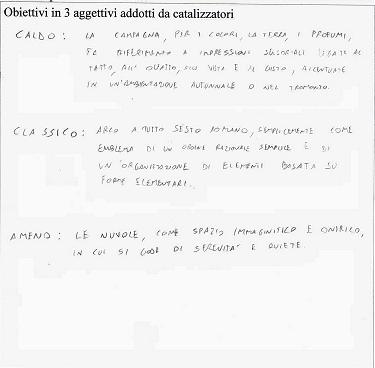 Obiettivi in 3 aggettivi addotti da catalizzatori
CALDO: LA CAMPAGNA, PER I COLORI, LA TERRA, I PROFUMI,
FA RIFERIMENTO A IMPRESSIONI SENSORIALI LEGATE AL
TATTO, ALL' OLFATTO, ALLA VISTA E AL GUSTO, ACCENTUATE
IN UN'AMBIENTAZIONE AUTUNNALE O NEL TRAMONTO.
CLASSICO: ARCO A TUTTO SESTO ROMANO, SEMPLICEMENTE COME
EMBLEMA DI UN ORDINE RAZIONALE SEMPLICE E DI
UN'ORGANIZZAZIONE DI ELEMENTI BASATA SU
FORME ELEMENTARI.
AMENO: LE NUVOLE, COME SPAZIO IMMAGINIFICO E ONIRICO,
IN CUI SI GODE DI SERENITA' E QUIETE.